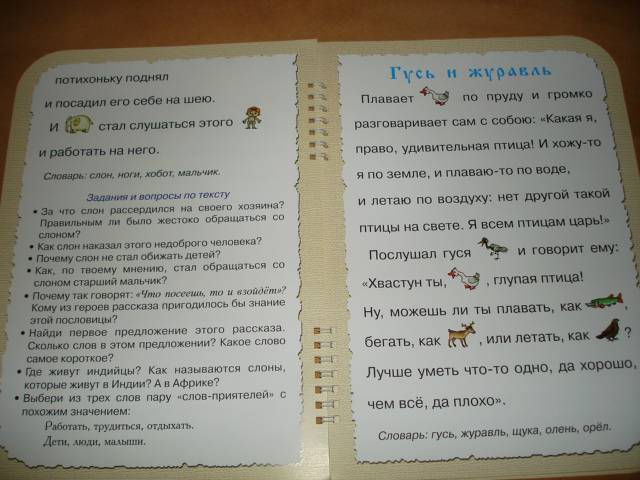 потихоньку поднял
и посадил его себе на шею.
И стал слушаться этого
и работать на него.
Словарь: слон, ноги, хобот, мальчик.
Задания и вопросы по тексту
• За что слон рассердился на своего хозяина?
Правильным ли было жестоко обращаться со
слоном?
• Как слон наказал этого недоброго человека?
• Почему слон не стал обижать детей?
• Как, по твоему мнению, стал обращаться со
слоном старший мальчик?
• Почему так говорят: «Что посеешь, то и взойдёт»?
Кому из героев рассказа пригодилось бы знание
этой пословицы?
• Найди первое предложение этого рассказа.
Сколько слов в этом предложении? Какое слово
самое короткое?
• Где живут индийцы? Как называются слоны,
которые живут в Индии? А в Африке?
• Выбери из трех слов пару «слов-приятелей» с
похожим значением:
Работать, трудиться, отдыхать.
Дети, люди, малыши.
Гусь и журавль
Плавает по пруду и громко
разговаривает сам с собою: «Какая я,
право, удивительная птица! И хожу-то
я по земле, и плаваю-то по воде,
и летаю по воздуху: нет другой такой
птицы на свете. Я всем птицам царь!»
Послушал гуся и говорит ему:
«Хвастун ты, , глупая птица!
Ну, можешь ли ты плавать, как ,
бегать, как , или летать, как ?
Лучше уметь что-то одно, да хорошо,
чем всё, да плохо».
Словарь: гусь, журавль, щука, олень, орёл.